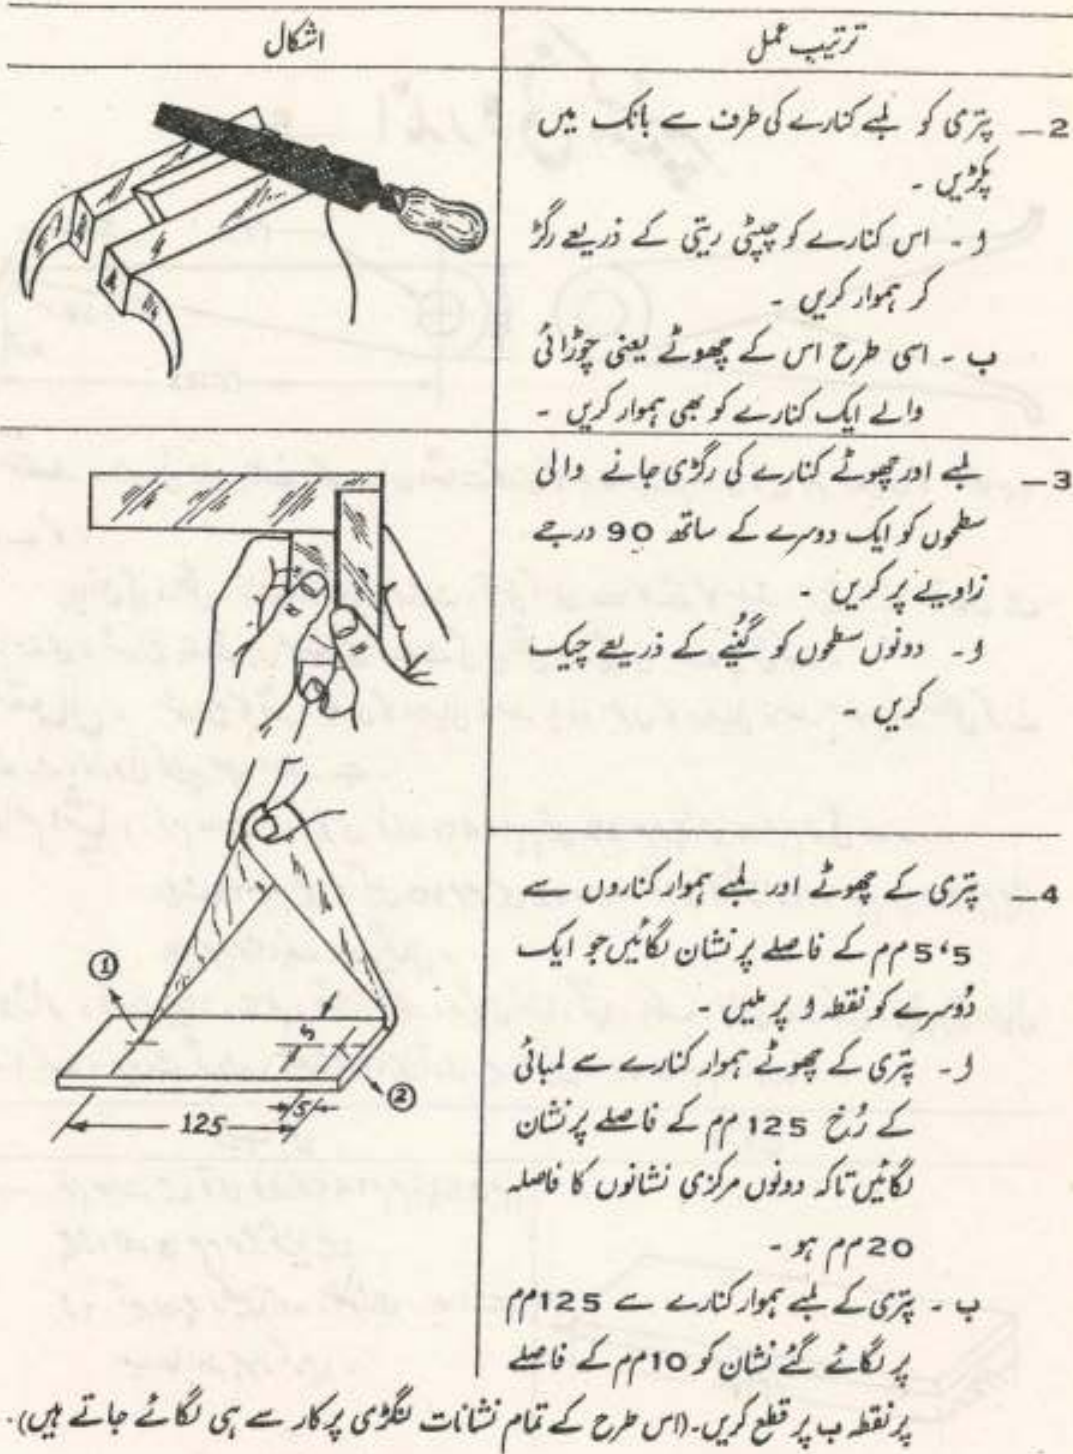 ترتیب عمل
اشکال
2— پتری کو لمبے کنارے کی طرف سے بانک میں
پکڑیں ۔
ا ۔ اس کنارے کو چپٹی ریتی کے ذریعے رگڑ
کر ہموار کریں ۔
ب ۔ اسی طرح اس کے چھوٹے یعنی چوڑائی
والے ایک کنارے کو بھی ہموار کریں ۔
3— لمبے اور چھوٹے کنارے کی رگڑی جانے والی
سطحوں کو ایک دوسرے کے ساتھ 90 درجے
زاویے پر کریں ۔
ا ۔ دونوں سطحوں کو گُنیے کے ذریعے چیک
کریں ۔
4— پتری کے چھوٹے اور لمبے ہموار کناروں سے
5،5 مم کے فاصلے پر نشان لگائیں جو ایک
دُوسرے کو نقطہ ا پر ملیں ۔
ا ۔ پتری کے چھوٹے ہموار کنارے سے لمبائی
کے رُخ 125 مم کے فاصلے پر نشان
لگائیں تاکہ دونوں مرکزی نشانوں کا فاصلہ
20 مم ہو ۔
ب ۔ پتری کے لمبے ہموار کنارے سے 125 مم
پر لگائے گئے نشان کو 10 مم کے فاصلے
پر نقطہ ب پر قطع کریں ۔ (اس طرح کے تمام نشانات لنگڑی پرکار سے ہی لگائے جاتے ہیں)۔
①
5
②
5
125